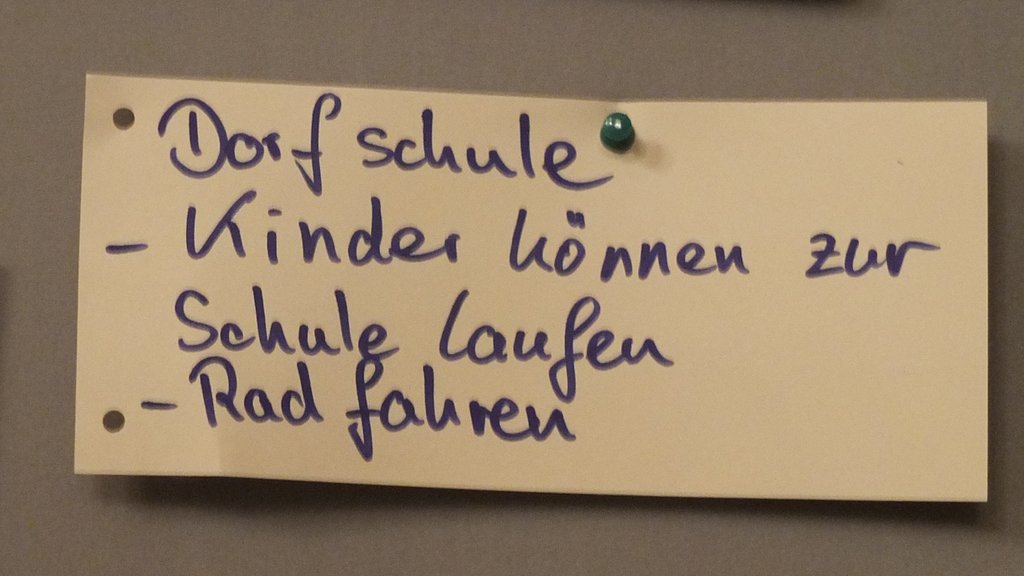 Dorfschule
- Kinder können zur
Schule laufen
- Rad fahren